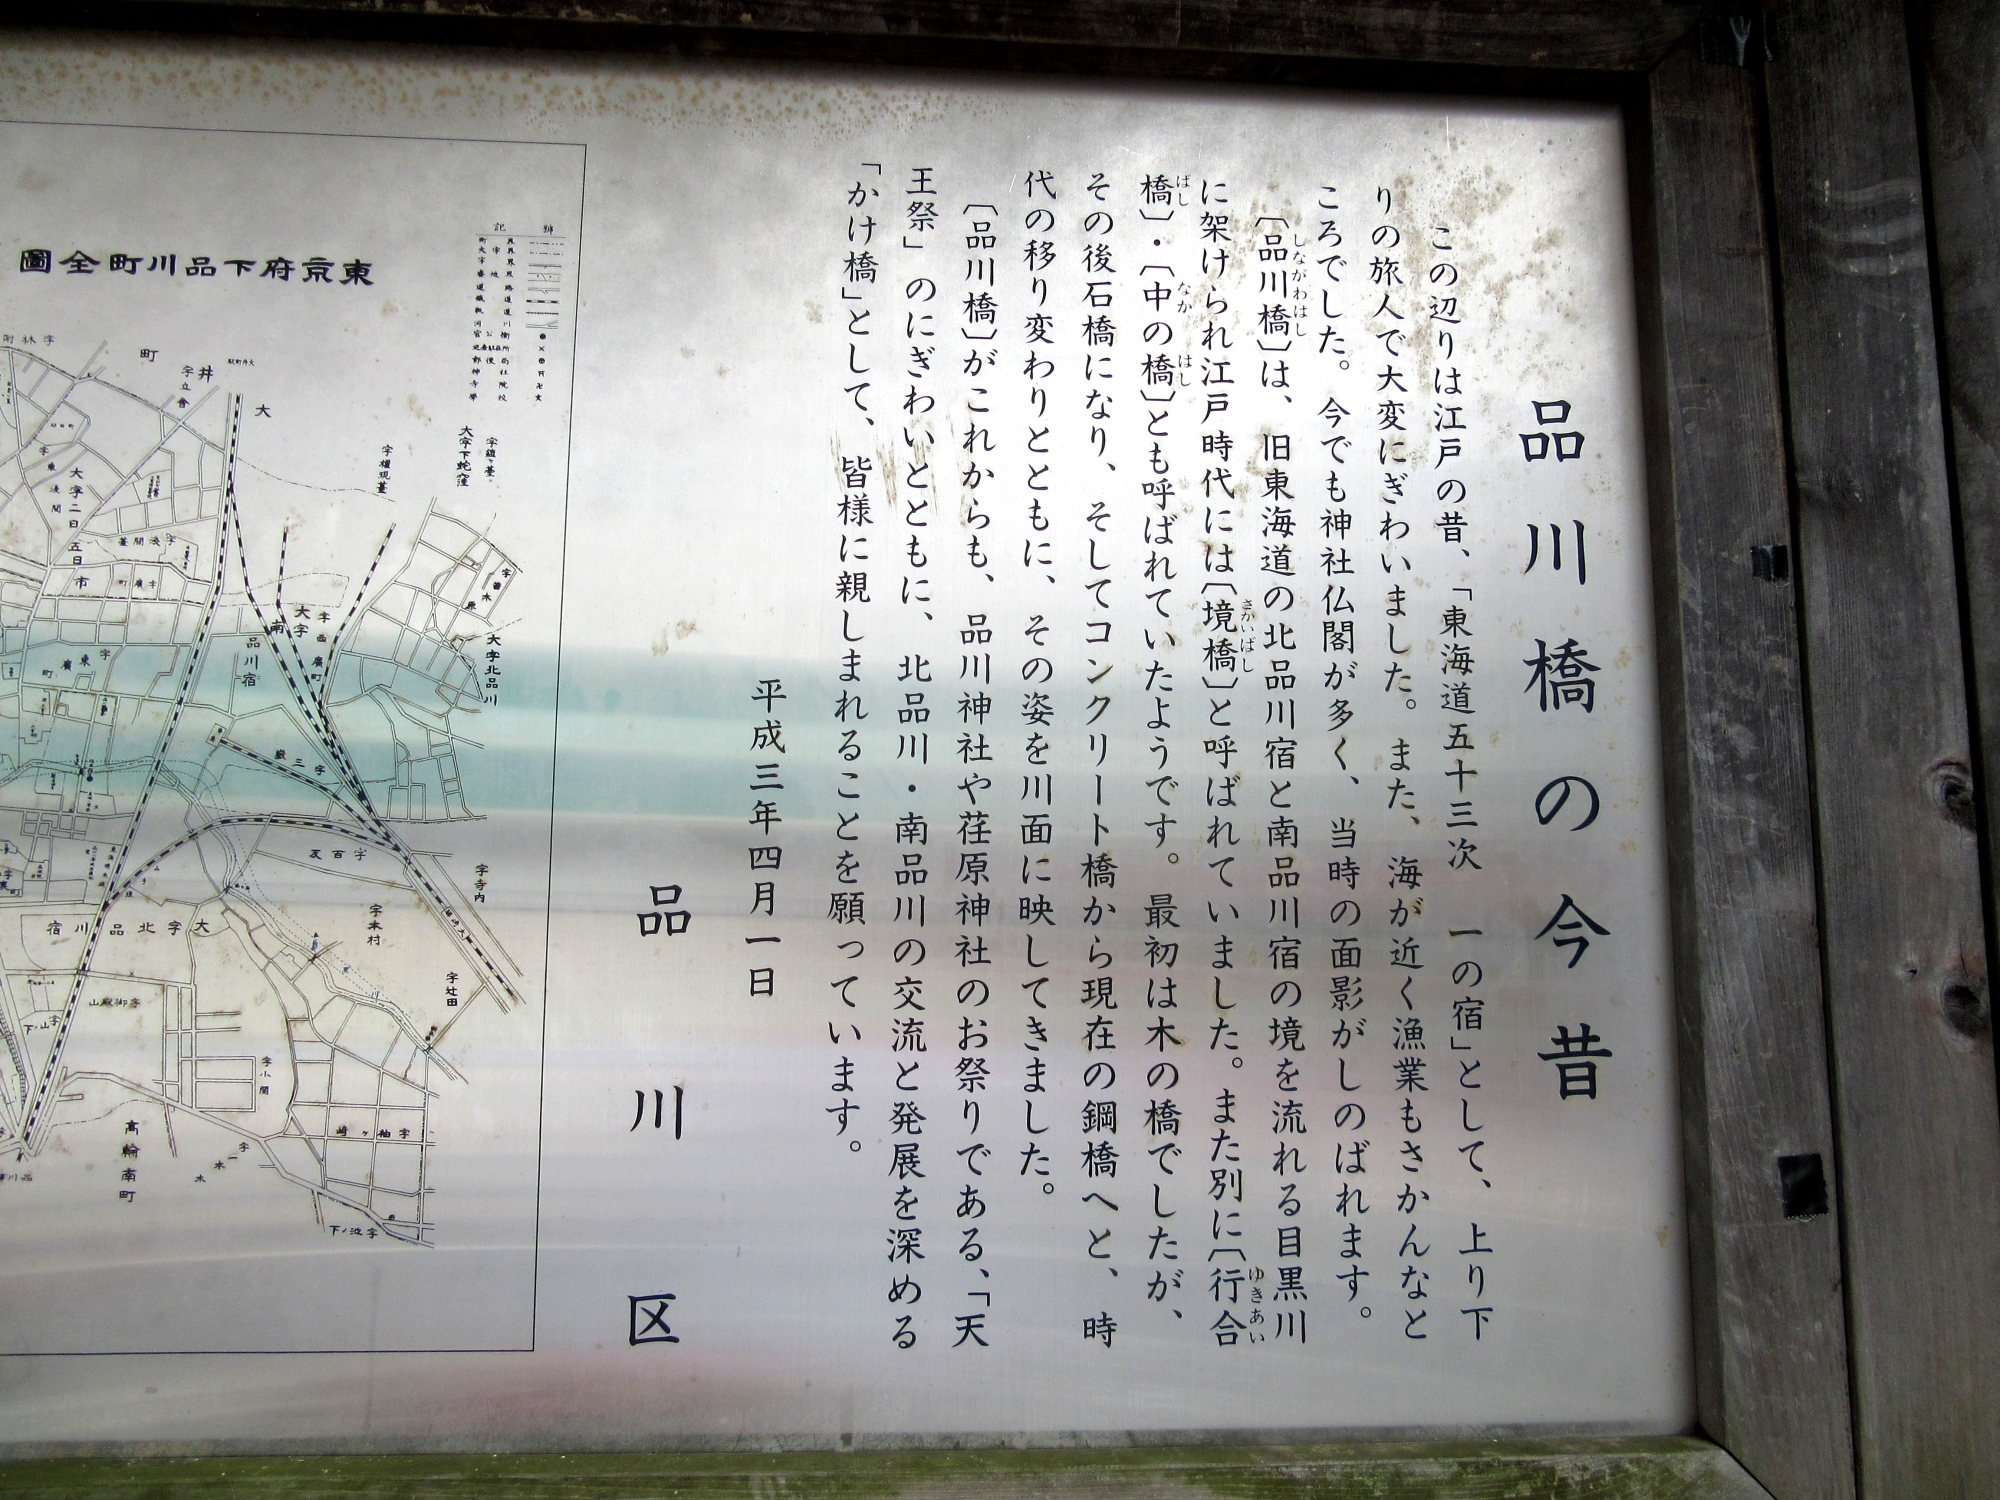 品川橋の今昔
この辺りは江戸の昔、「東海道五十三次　一の宿」として、上り下
りの旅人で大変にぎわいました。また、海が近く漁業もさかんなと
ころでした。今でも神社仏閣が多く、当時の面影がしのばれます。
〔品川橋〕は、旧東海道の北品川宿と南品川宿の境を流れる目黒川
しながわはし
に架けられ江戸時代には〔境橋〕と呼ばれていました。また別に〔行合
さかいばし
ゆきあい
橋〕・〔中の橋〕とも呼ばれていたようです。最初は木の橋でしたが、
ばし
なか
はし
その後石橋になり、そしてコンクリート橋から現在の鋼橋へと、時
代の移り変わりとともに、その姿を川面に映してきました。
〔品川橋〕がこれからも、品川神社や荏原神社のお祭りである、「天
王祭」のにぎわいとともに、北品川・南品川の交流と発展を深める
「かけ橋」として、皆様に親しまれることを願っています。
平成三年四月一日
品川区
東京府下品川町全圖
記號
大井町
字立會
字權現臺
大字下蛇窪
大字二日五日市
字廣町
大字南品川宿
字西廣町
大字北品川
字東廣町
字三嶽
字百反
字寺内
字本村
字辻田
大字北品川宿
字御殿山
字小関
高輪南町
字袖ヶ崎